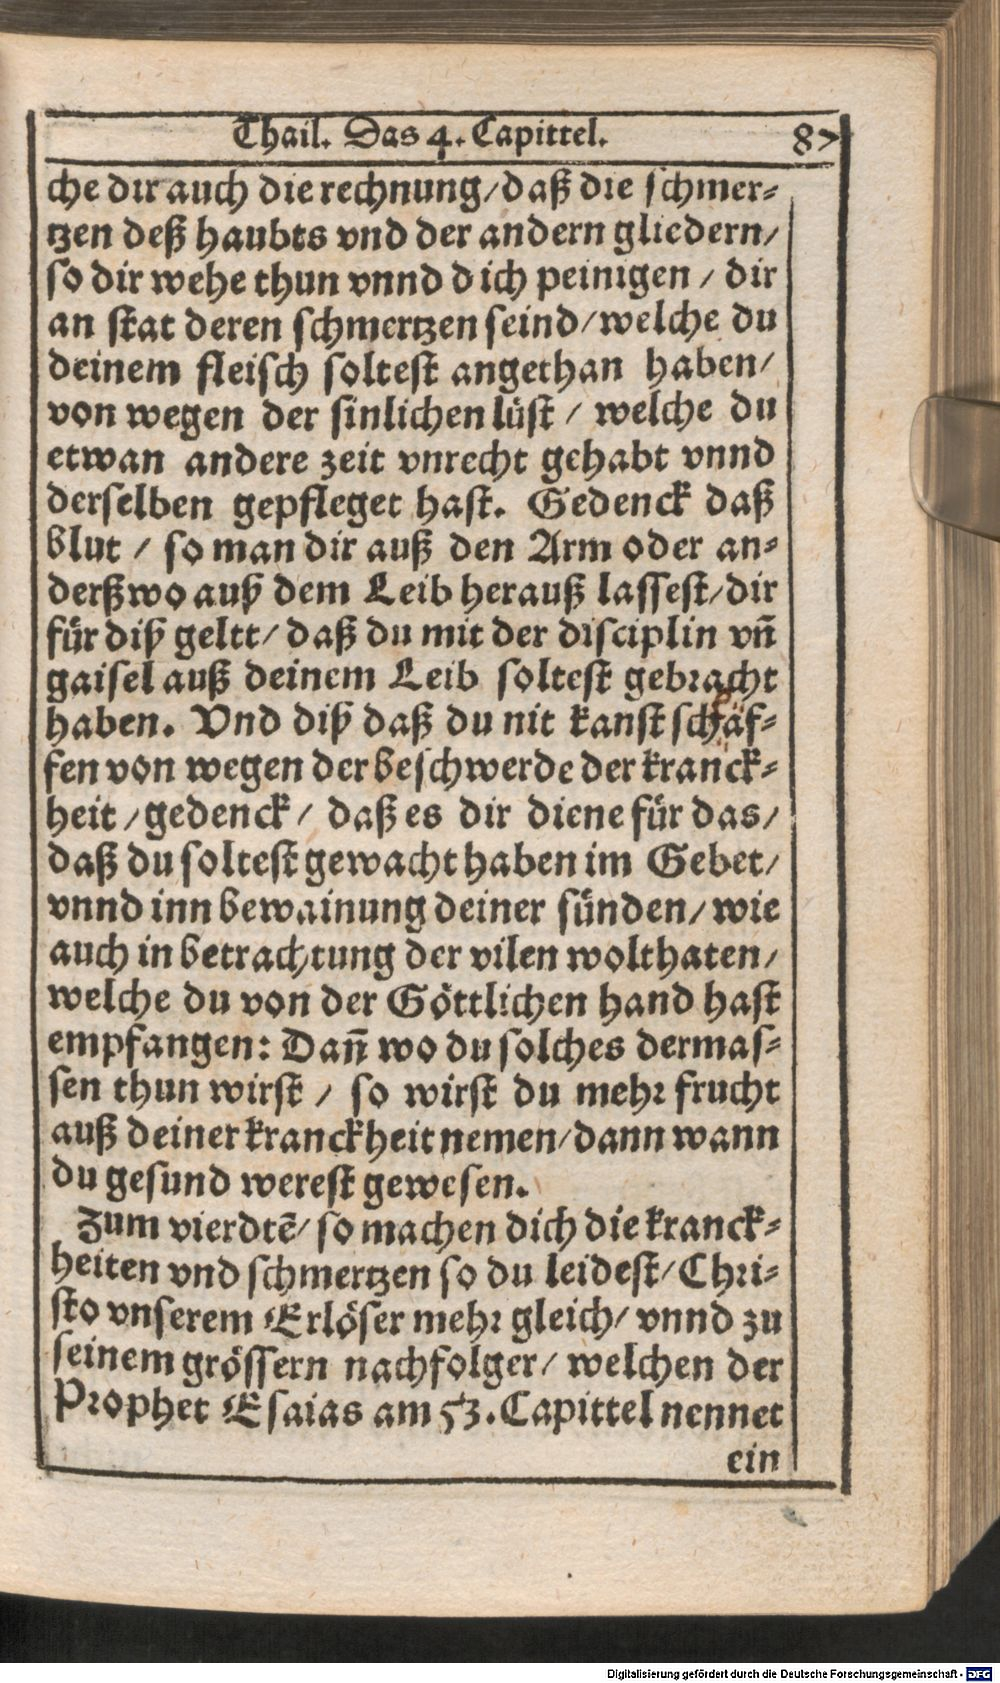 Thail. Das 4. Capittel. 87
che dir auch die rechnung/ daß die schmer-
tzen deß haubts vnd der andern gliedern/
so dir wehe thun vnnd dich peinigen / dir
an stat deren schmertzen seind/ welche du
deinem fleisch soltest angethan haben/
von wegen der sinlichen lüst / welche du
etwan andere zeit vnrecht gehabt vnnd
derselben gepfleget hast. Gedenck daß
blut / so man dir auß den Arm oder an-
derßwo auß dem Leib herauß lassest/ dir
für diß geltt/ daß du mit der disciplin vñ
gaisel auß deinem Leib soltest gebracht
haben. Vnd diß daß du nit kanst schäf-
fen von wegen der beschwerde der kranck-
heit / gedenck / daß es dir diene für das/
daß du soltest gewacht haben im Gebet/
vnnd inn bewainung deiner sünden/ wie
auch in betrachtung der vilen wolthaten/
welche du von der Göttlichen hand hast
empfangen: Dañ wo du solches dermas-
sen thun wirst / so wirst du mehr frucht
auß deiner kranckheit nemen/ dann wann
du gesund werest gewesen.
Zum vierdtē/ so machen dich die kranck-
heiten vnd schmertzen so du leidest/ Chri-
sto vnserem Erlöser mehr gleich/ vnnd zu
seinem grössern nachfolger/ welchen der
Prophet Esaias am 53. Capittel nennet
ein
Digitalisierung gefördert durch die Deutsche Forschungsgemeinschaft - DFG